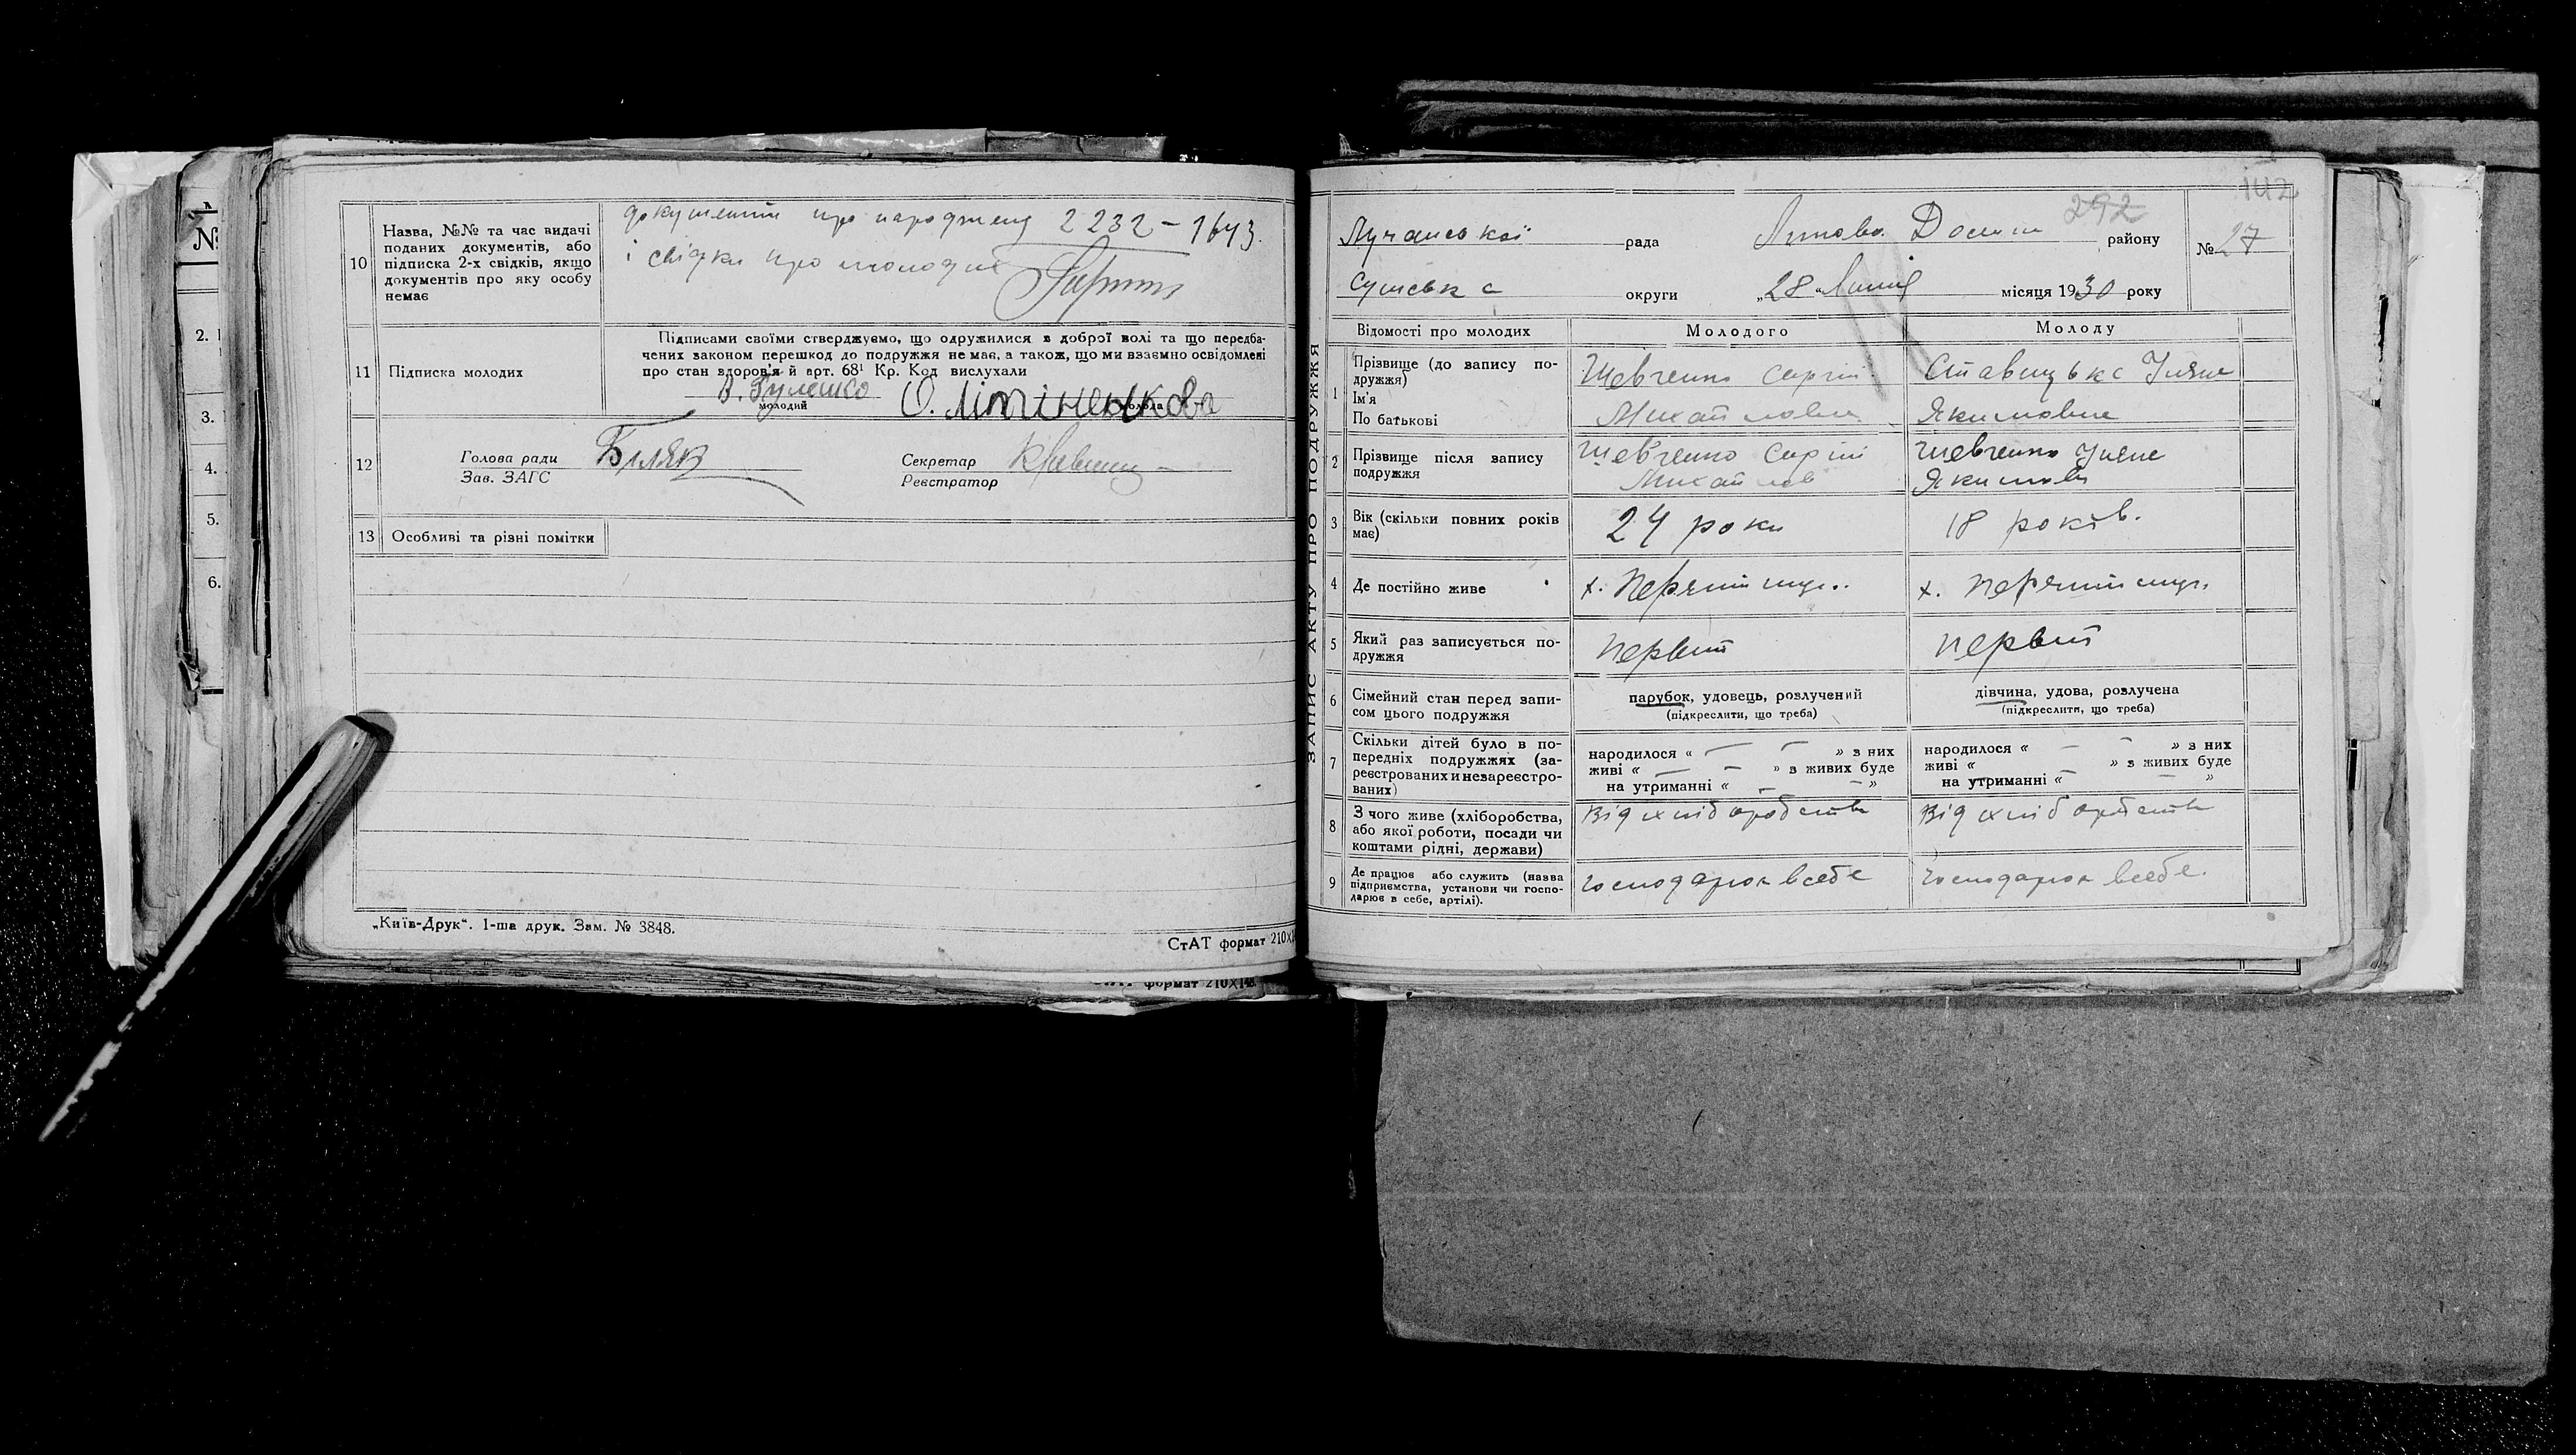 10 Назва, №№ та час видачі поданих документів, або підписка 2-х свідків, якщо документів про яку особу немає
документи про народжену 2232 - 1643.
і свідки про молодих
11 Підписка молодих
Підписами своїми стверджуємо, що одружилися з доброї волі та що передба-
чених законом перешкод до подружжя немає, а також, що ми взаємно освідомлені
про стан здоров'я й арт. 68¹ Кр. Код вислухали
В. Гулешко О. Літіненкова
молодий молода
12 Голова ради Біляв Секретар
Зав. ЗАГС Реєстратор
13 Особливі та різні помітки
„Київ-Друк“. 1-ша друк. Зам. № 3848.
СтАТ формат 210X
формат 210X148
№
2.
3.
4.
5.
6.
142
292
Лучанської рада Липово Долин району № 27
Сумська округи „28“ Липня місяця 1930 року
ЗАПИС АКТУ ПРО ПОДРУЖЖЯ
Відомості про молодих Молодого Молоду
1 Прізвище (до запису по-
дружжя)
Ім'я
По батькові
Шевченко Сергій
Михайлович
Ставицька Уляна
Якимовна
2 Прізвище після запису
подружжя
Шевченко Сергій
Михайлов
Шевченко Уляна
Якимовн
3 Вік (скільки повних років
має)
24 роки
18 років.
4 Де постійно живе
5 Який раз записується по-
дружжя
первий
первий
6 Сімейний стан перед запи-
сом цього подружжя
парубок, удовець, розлучений
(підкреслити, що треба)
дівчина, удова, розлучена
(підкреслити, що треба)
7 Скільки дітей було в по-
передніх подружжях (за-
реєстрованих и незареєстро-
ваних)
народилося « — — » з них
живі « — — » з живих буде
на утриманні « — — »
народилося « — — » з них
живі « — — » з живих буде
на утриманні « — — »
8 З чого живе (хліборобства,
або якої роботи, посади чи
коштами рідні, держави)
від хліборобств
від хліборобств
9 Де працює або служить (назва
підприємства, установи чи госпо-
дарює в себе, артілі).
господарює в себе
господарює в себе.